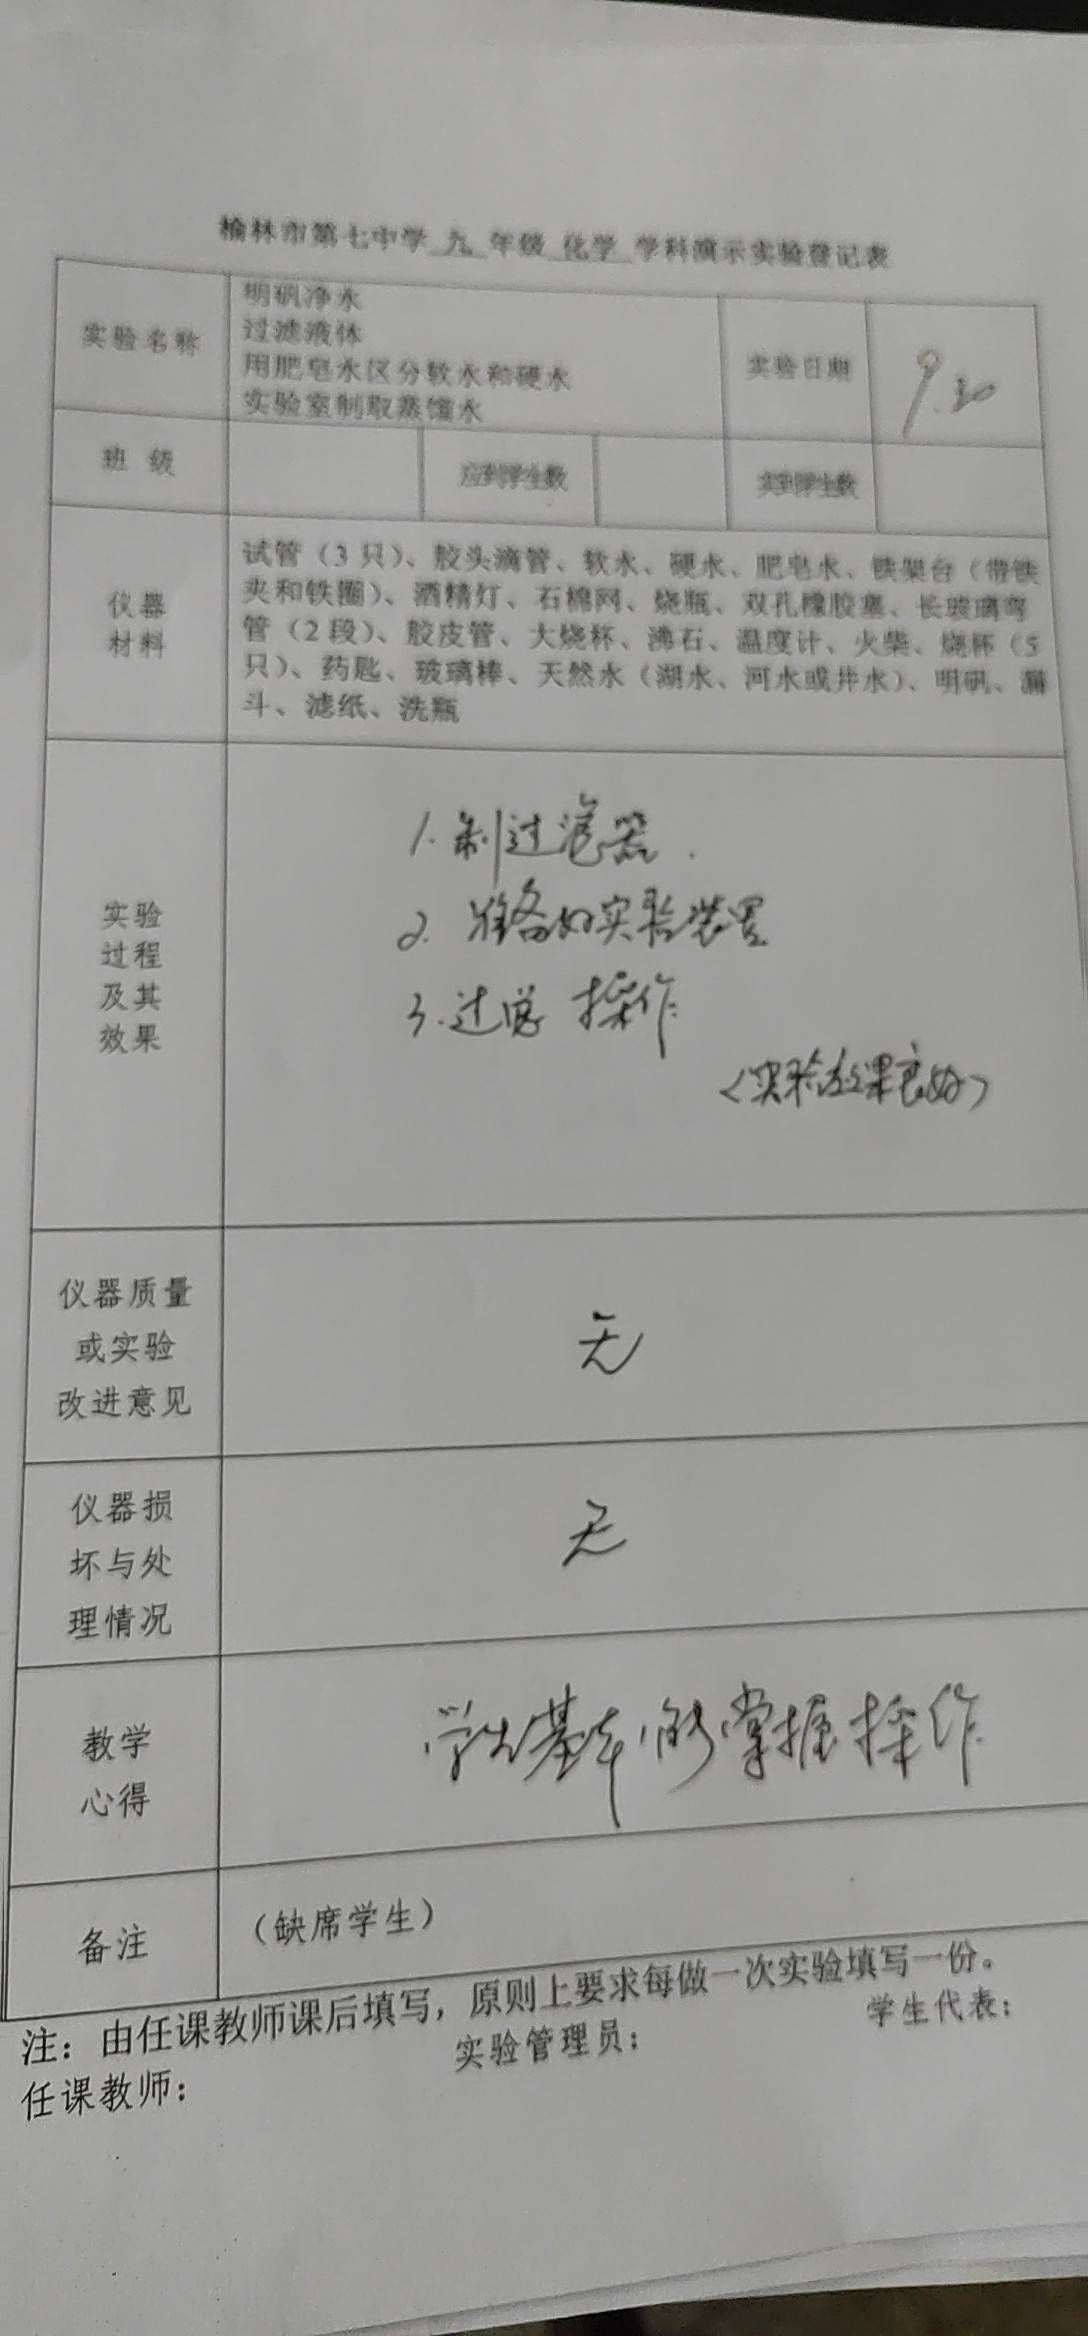 榆林市第七中学 九 年级 化学 学科演示实验登记表
实验名称
明矾净水
过滤液体
用肥皂水区分软水和硬水
实验室制取蒸馏水
实验日期
9.30
班 级
应到学生数
实到学生数
仪器
材料
试管（3 只）、胶头滴管、软水、硬水、肥皂水、铁架台（带铁
夹和铁圈）、酒精灯、石棉网、烧瓶、双孔橡胶塞、长玻璃弯
管（2 段）、胶皮管、大烧杯、沸石、温度计、火柴、烧杯（5
只）、药匙、玻璃棒、天然水（湖水、河水或井水）、明矾、漏
斗、滤纸、洗瓶
实验
过程
及其
效果
1. 制过滤器.
2. 准备好实验装置
3. 过滤 操作
<实验效果良好>
仪器质量
或实验
改进意见
无
仪器损
坏与处
理情况
无
教学
心得
学生基本能够掌握操作
备注
（缺席学生）
注：由任课教师课后填写，原则上要求每做一次实验填写一份。
任课教师： 实验管理员： 学生代表：